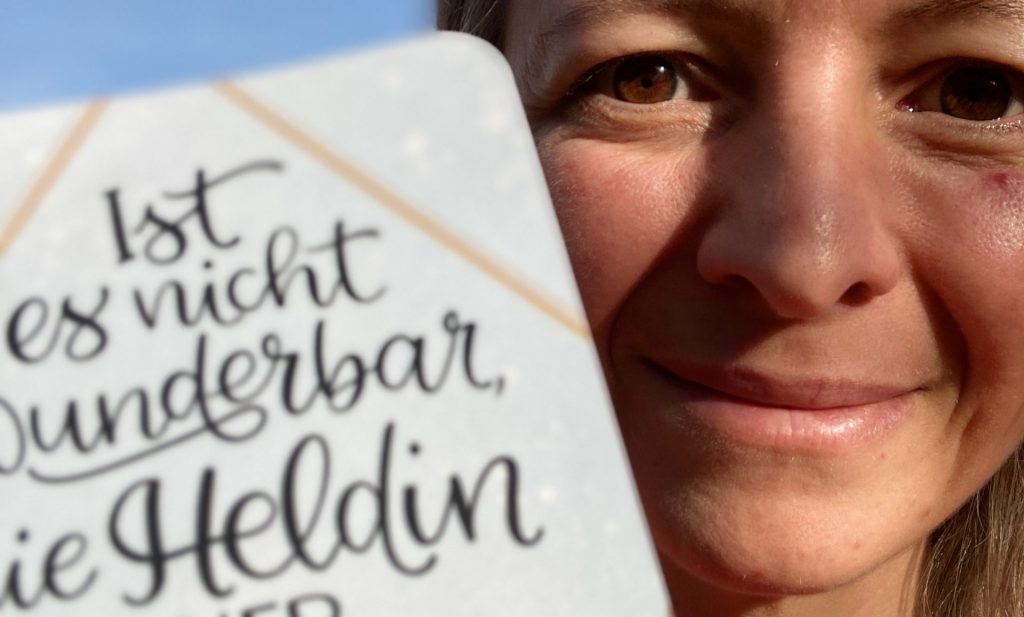 Ist
es nicht
wunderbar,
die Heldin